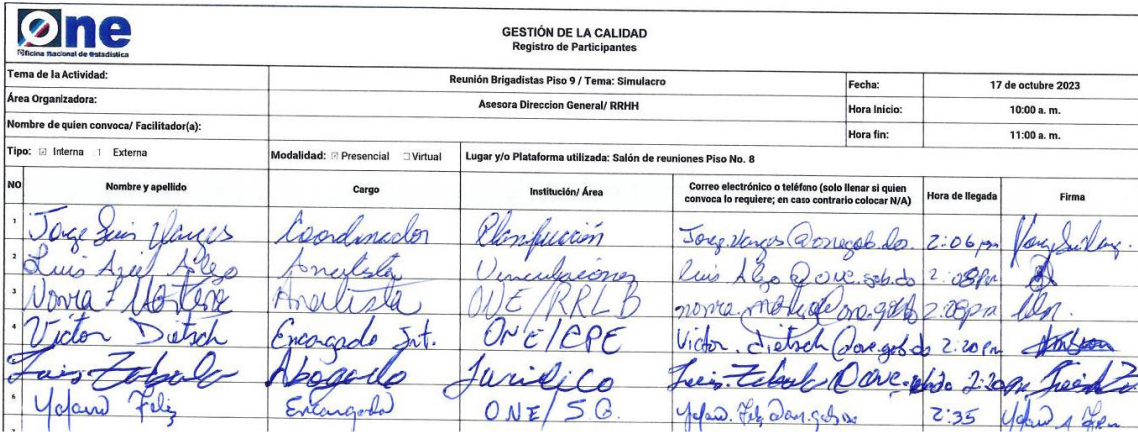 One
Oficina Nacional de Estadística
GESTIÓN DE LA CALIDAD
Registro de Participantes
Tema de la Actividad: Reunión Brigadistas Piso 9 / Tema: Simulacro Fecha: 17 de octubre 2023
Área Organizadora: Asesora Direccion General/ RRHH Hora Inicio: 10:00 a. m.
Nombre de quien convoca/ Facilitador(a): Hora fin: 11:00 a. m.
Tipo: Interna Externa Modalidad: Presencial Virtual Lugar y/o Plataforma utilizada: Salón de reuniones Piso No. 8
NO Nombre y apellido Cargo Institución/ Área Correo electrónico o teléfono (solo llenar si quien convoca lo requiere; en caso contrario colocar N/A) Hora de llegada Firma
1 Jorge Luis Vargas Coordinador Planificación Jorge.Vargas@one.gob.do. 2:06 pm
2 Luis Ariel Analista Vinculaciones 2:08pm
3 Analista ONE/RRLB 2:08pm
4 Victor Dietsch Encargado Int. ONE/CPE Victor.dietsch@one.gob.do 2:20 pm
Luis Abogado Jurídico 2:20
6 Feliz Encargada ONE/SG. 2:35